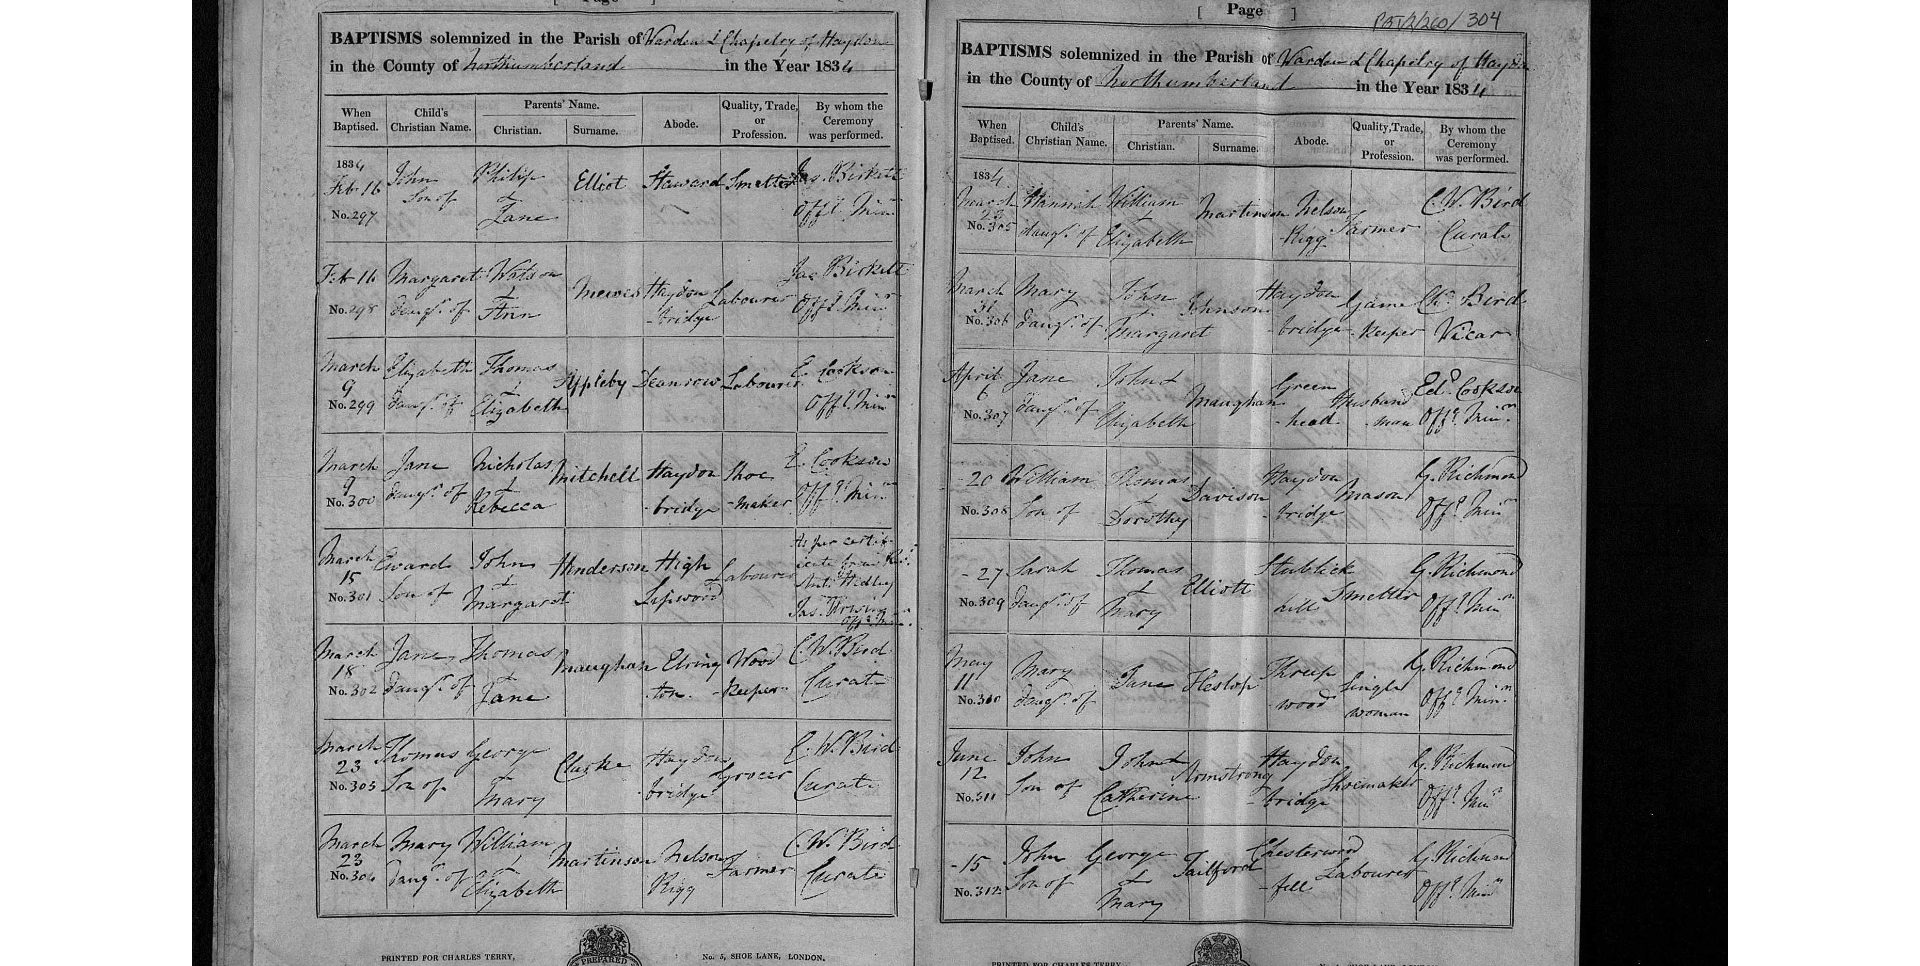 Page
BAPTISMS solemnized in the Parish of Warden & Chapelry of Haydon
in the County of Northumberland in the Year 1834
When Baptised. Child's Christian Name. Parents' Name. Christian. Surname. Abode. Quality, Trade, or Profession. By whom the Ceremony was performed.
1834
Feb 16 John Philip Elliot Haward Smelter Jas. Birkett
No. 297 Son of & Jane Offg. Minr
Feb 16 Margaret Watson Mewes Haydon Labourer Jas Birkett
No. 298 Daugr. of & Ann -bridge Offg. Minr
March 9 Elizabeth Thomas Appleby Deanrow Labourer E. Cookson
No. 299 Daugr. of & Elizabeth Offg. Minr
March 9 Jane Nicholas Mitchell Haydon Shoe E. Cookson
No. 300 Daugr. of & Rebecca -bridge -maker Offg. Minr
March 15 Edward John Henderson High Labourer As per certif-
icate from Revd.
No. 301 Son of & Margaret Lipwood Ant. Hedley
Jas.
Offg. Min.
March 18 Jane Thomas Maughan Elring Wood C. W. Bird
No. 302 Daugr. of & Jane ton. -keeper Curate
March 23 Thomas George Clarke Haydon Grocer C. W. Bird
No. 303 Son of & Mary -bridge Curate
March 23 Mary William Martinson Nelson Farmer C. W. Bird
No. 304 Daugr. of & Elizabeth Rigg Curate
PRINTED FOR CHARLES TERRY, No. 5, SHOE LANE, LONDON.
PREPARED
[ Page ]
304
BAPTISMS solemnized in the Parish of Warden & Chapelry of Haydon
in the County of Northumberland in the Year 1834
When Baptised. Child's Christian Name. Parents' Name. Christian. Surname. Abode. Quality, Trade, or Profession. By whom the Ceremony was performed.
1834
March 23 Hannah William Martinson Nelson Farmer C. W. Bird
No. 305 Daugr. of & Elizabeth Rigg Curate
March 31 Mary John Johnson Haydon Game Chs. Bird
No. 306 Daugr. of & Margaret -bridge -keeper Vicar
April 6 Jane John & Maughan Green Husband Edd. Cookson
No. 307 Daugr. of Elizabeth -head -man Offg. Minr.
-20 William Thomas Davison Haydon Mason G. Richmond
No. 308 Son of & Dorothy -bridge Offg. Minr
-27 Sarah Thomas Elliott Stublick Smelter G. Richmond
No. 309 Daugr. of & Mary hill Offg. Minr
May 11 Mary Jane Heslop Threep Single G. Richmond
No. 310 Daugr. of -wood woman Offg. Minr.
June 12 John John & Armstrong Haydon Shoemaker G. Richmond
No. 311 Son of Catherine -bridge Offg. Minr
-15 John George Tailford Chesterwood Labourer G. Richmond
No. 312 Son of & Mary -fell Offg. Minr
PRINTED FOR CHARLES TERRY,